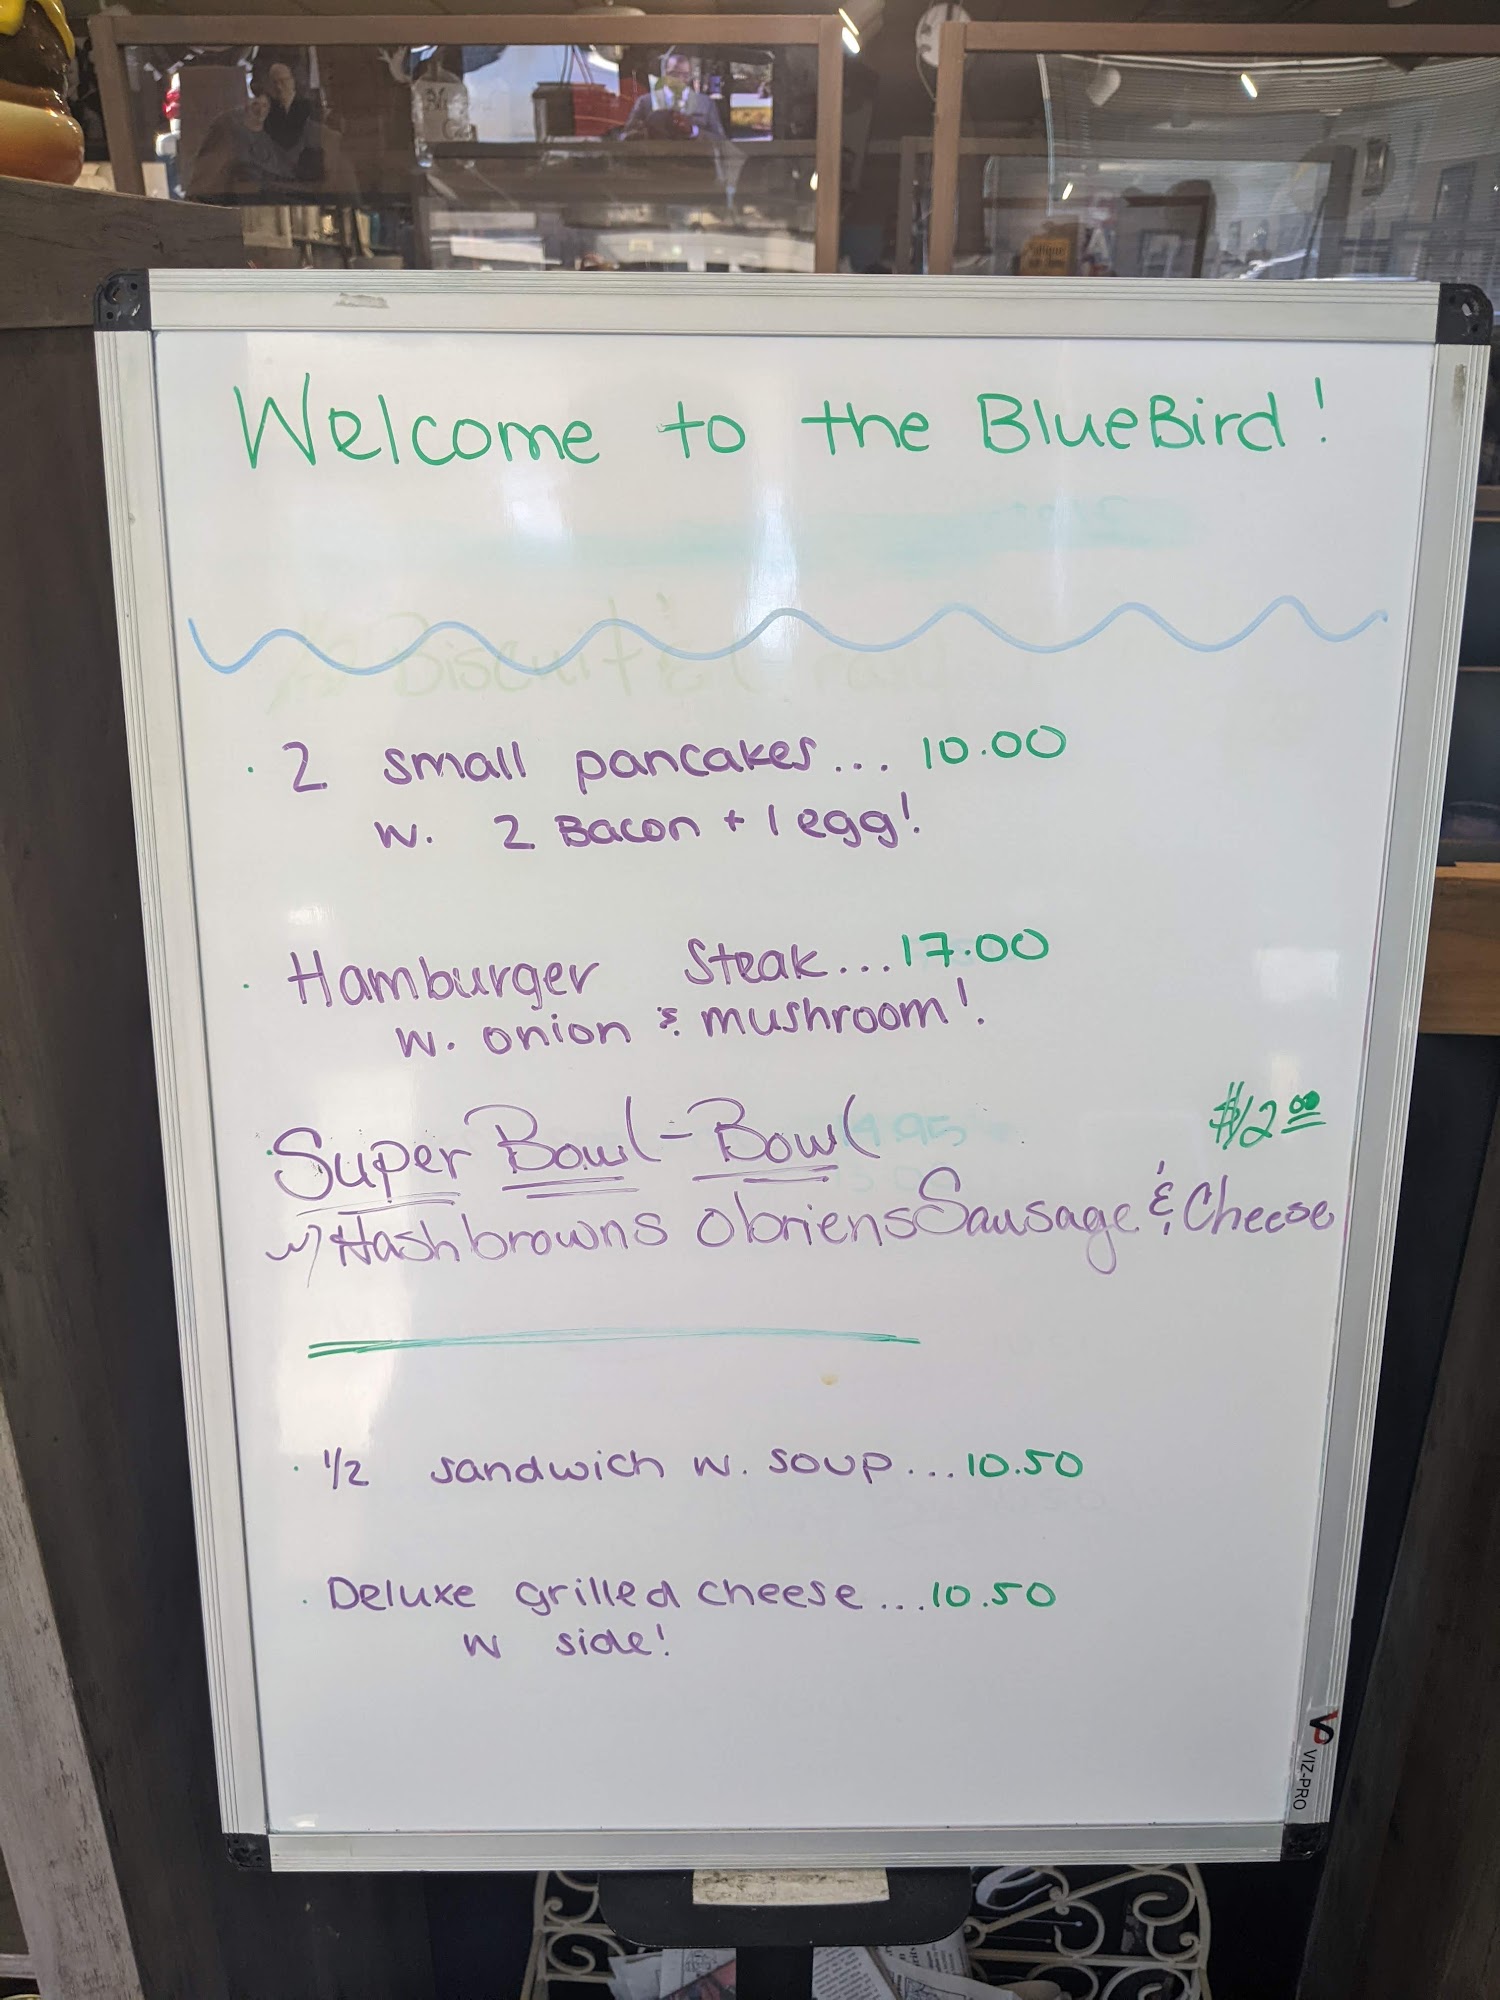 Welcome to the BlueBird!
· 2 small pancakes... 10.00
w. 2 Bacon + 1 egg!
· Hamburger Steak... 17.00
w. onion & mushroom!
· Super Bowl-Bowl $12.00
w/ Hashbrowns obriens Sausage & Cheese
· 1/2 sandwich w. soup... 10.50
· Deluxe grilled cheese... 10.50
w side!
VIZ-PRO